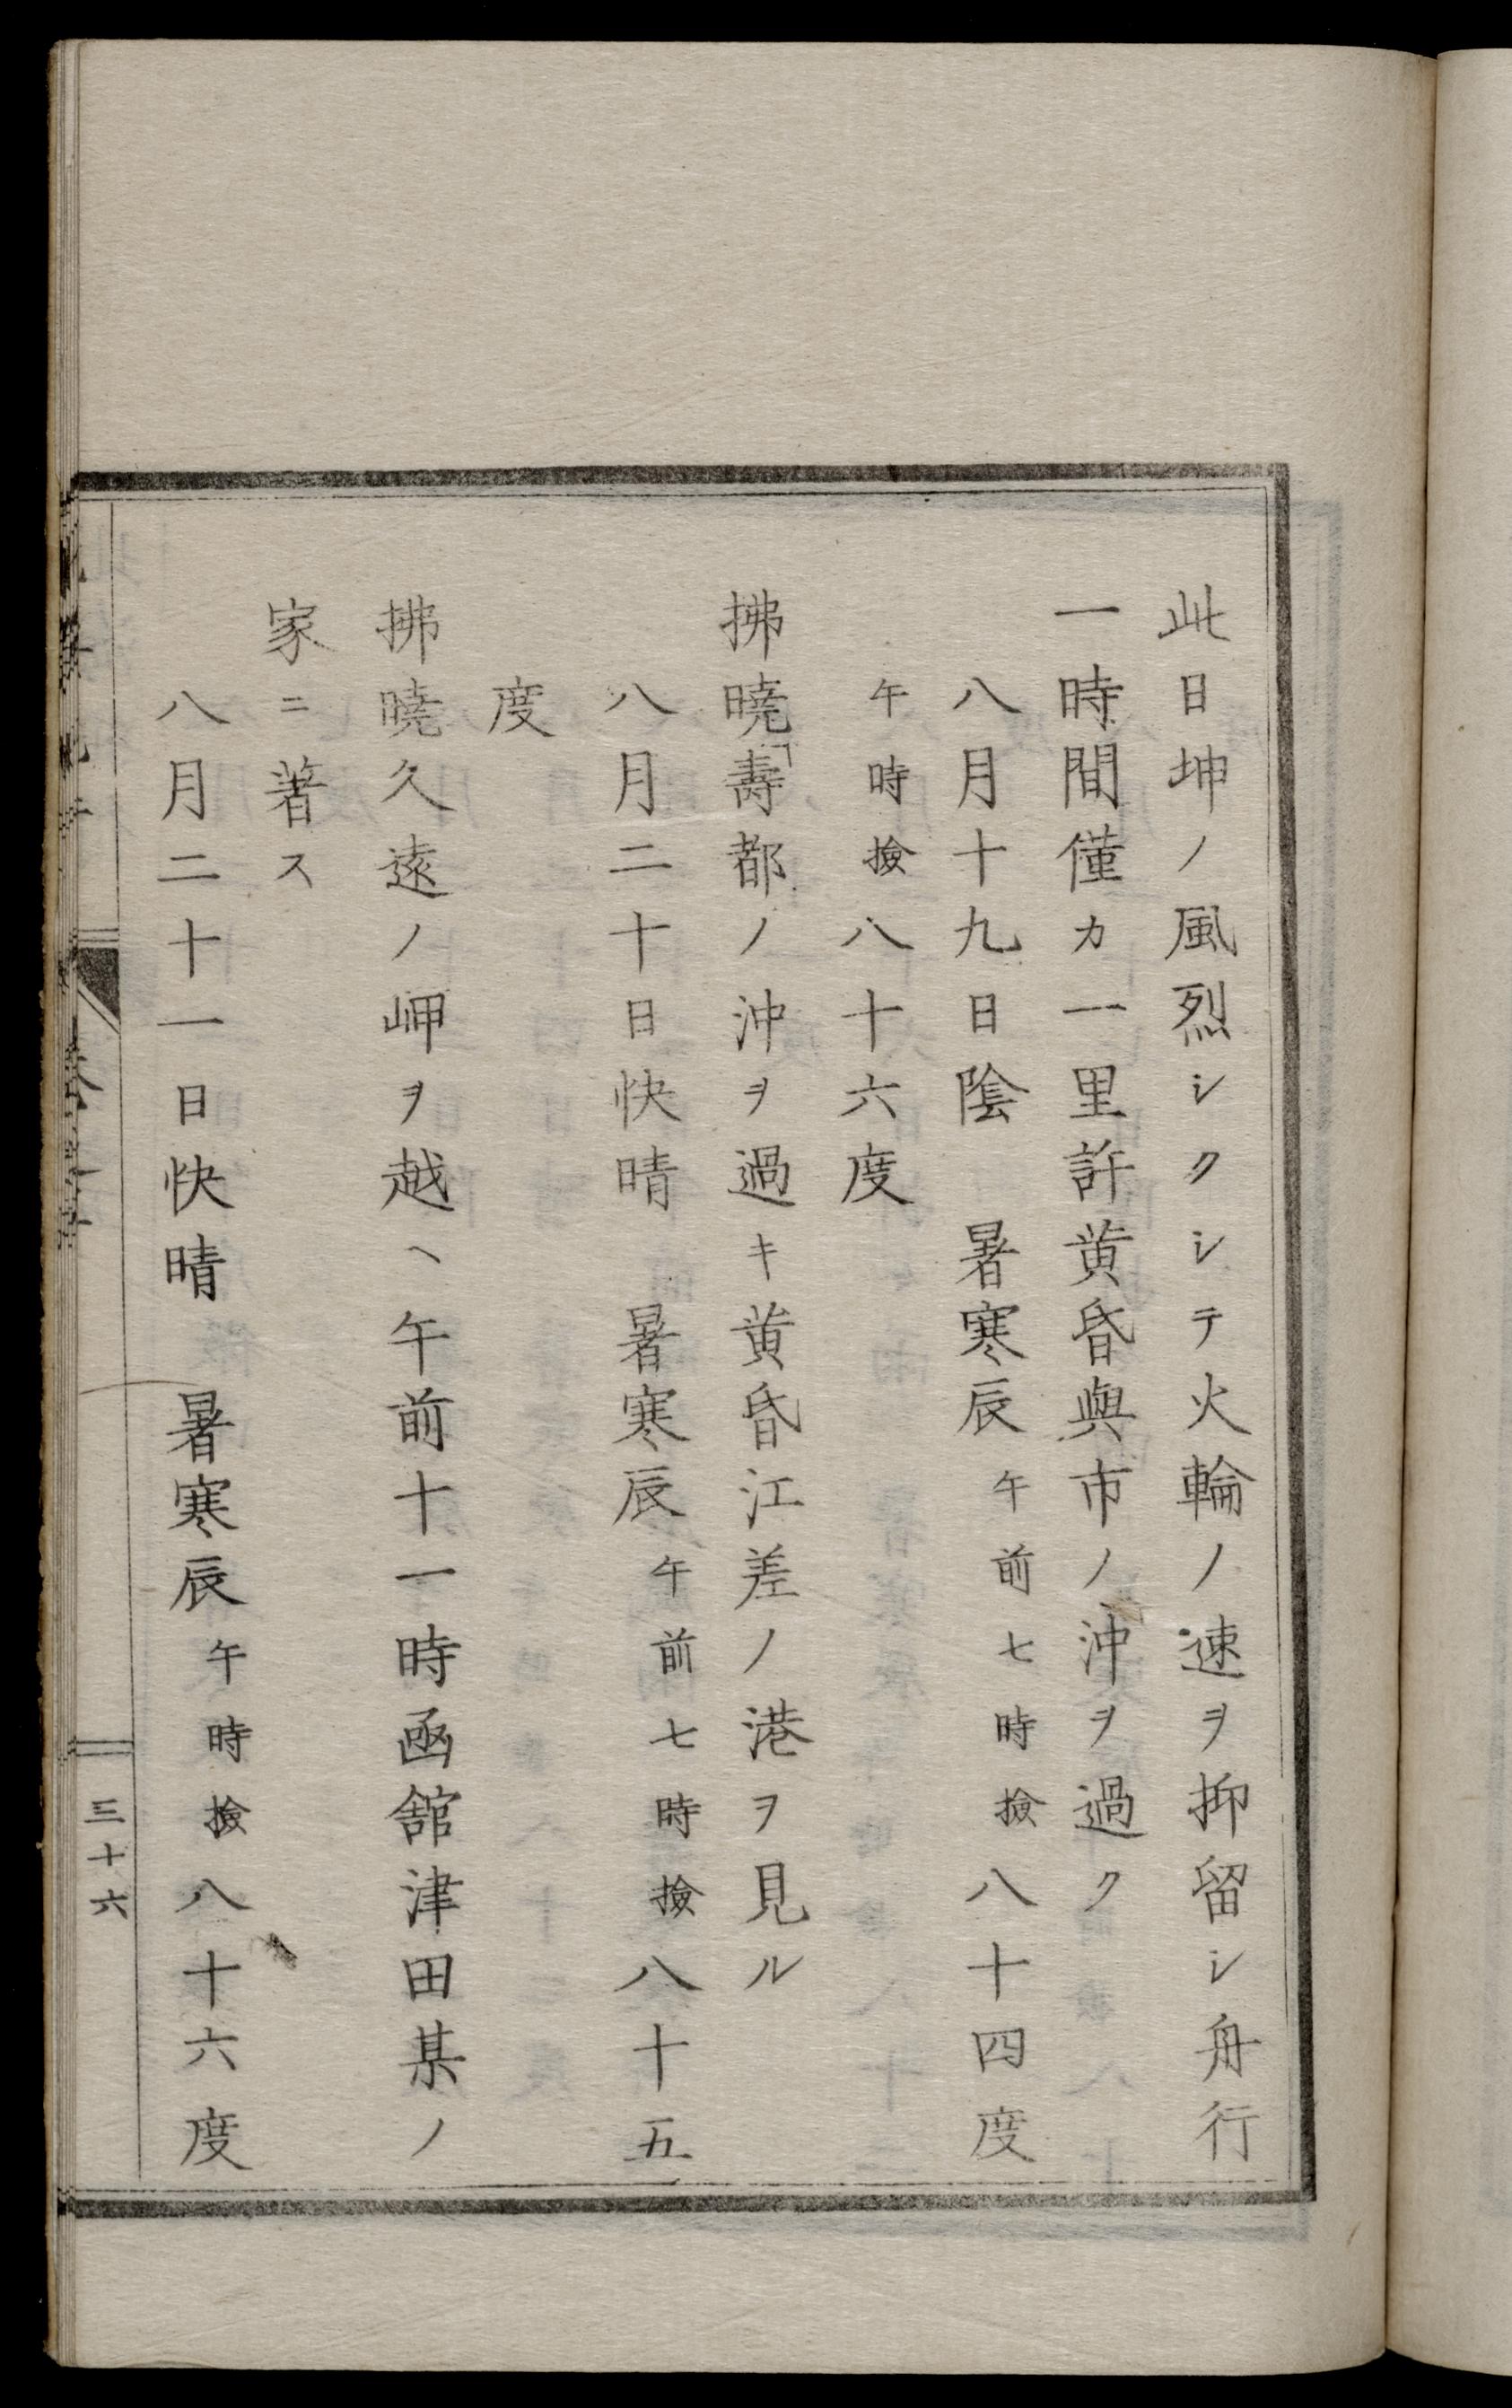 此日坤ノ風烈シクシテ火輪ノ速ヲ抑留シ舟行
一時間僅カ一里許黄昏與市ノ沖ヲ過ク
八月十九日陰　暑寒辰午前七時撿八十四度
午時撿八十六度
拂曉壽都ノ沖ヲ過キ黄昏江差ノ港ヲ見ル
八月二十日快晴　暑寒辰午前七時撿八十五
度
拂曉久遠ノ岬ヲ越ヘ午前十一時凾舘津田某ノ
家ニ著ス
八月二十一日快晴　暑寒辰午時撿八十六度
三十六